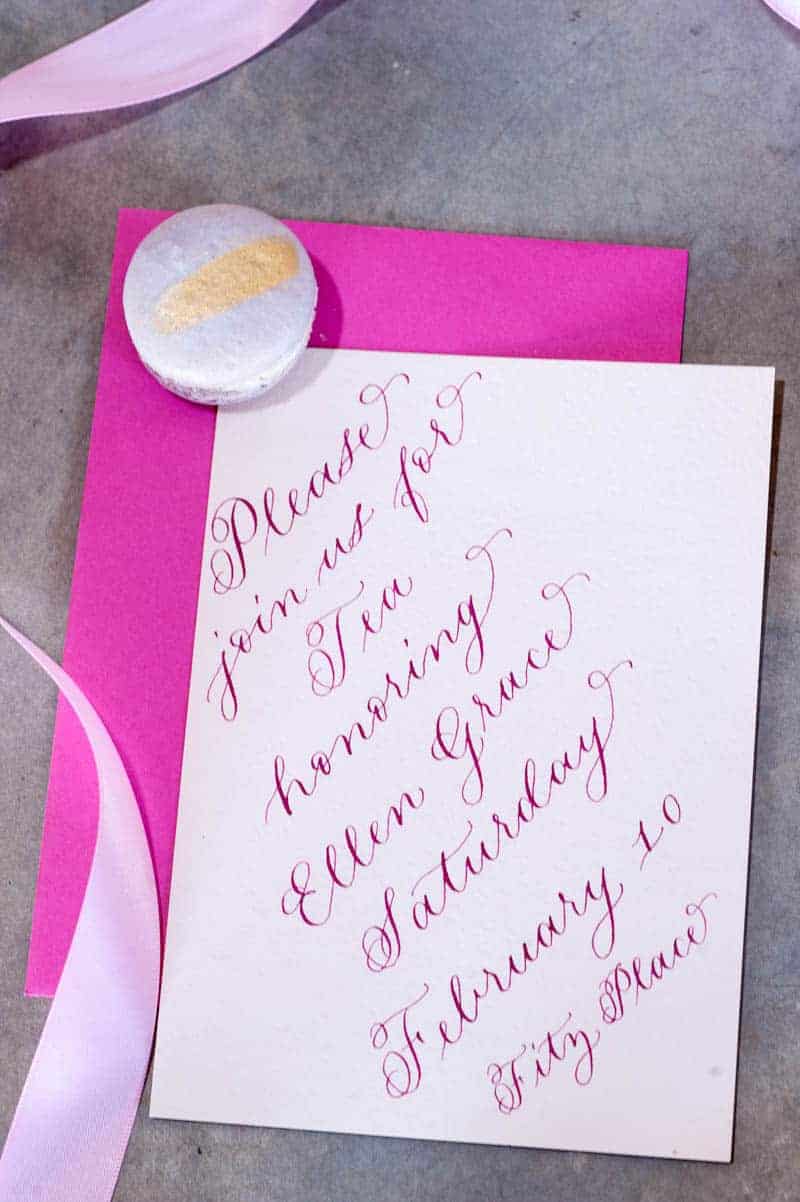 Please
join us for
Tea
honoring
Ellen Grace
Saturday
February 10
Fitz Place